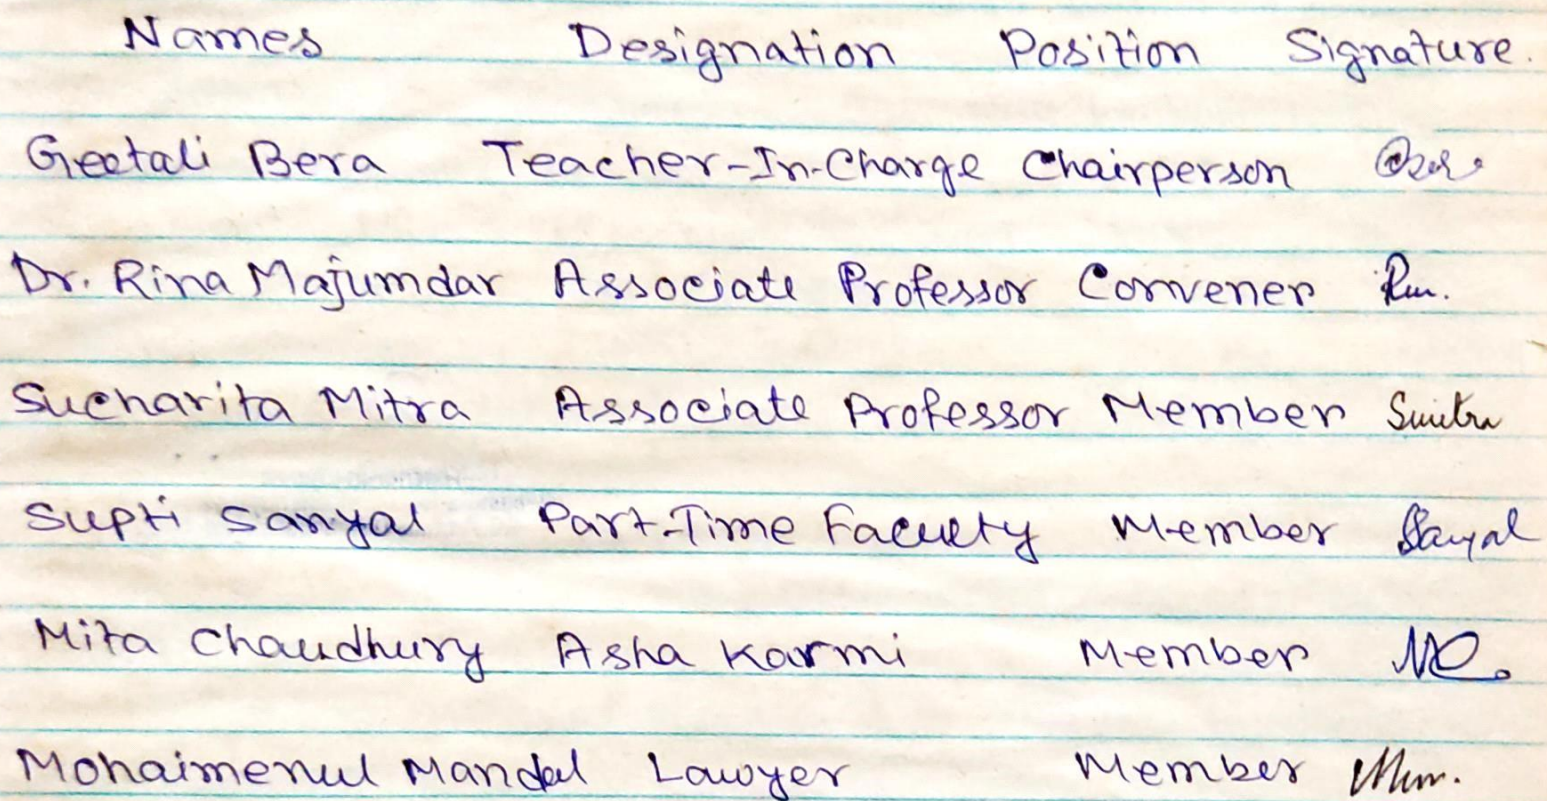 Names Designation Position Signature.
Geetali Bera Teacher-In-Charge Chairperson
Dr. Rina Majumdar Associate Professor Convener Rm.
Sucharita Mitra Associate Professor Member Smitra
Supti Sanyal Part-Time Faculty Member Sanyal
Mita Chaudhury Asha Karmi Member MC.
Mohaimenul Mandal Lawyer Member